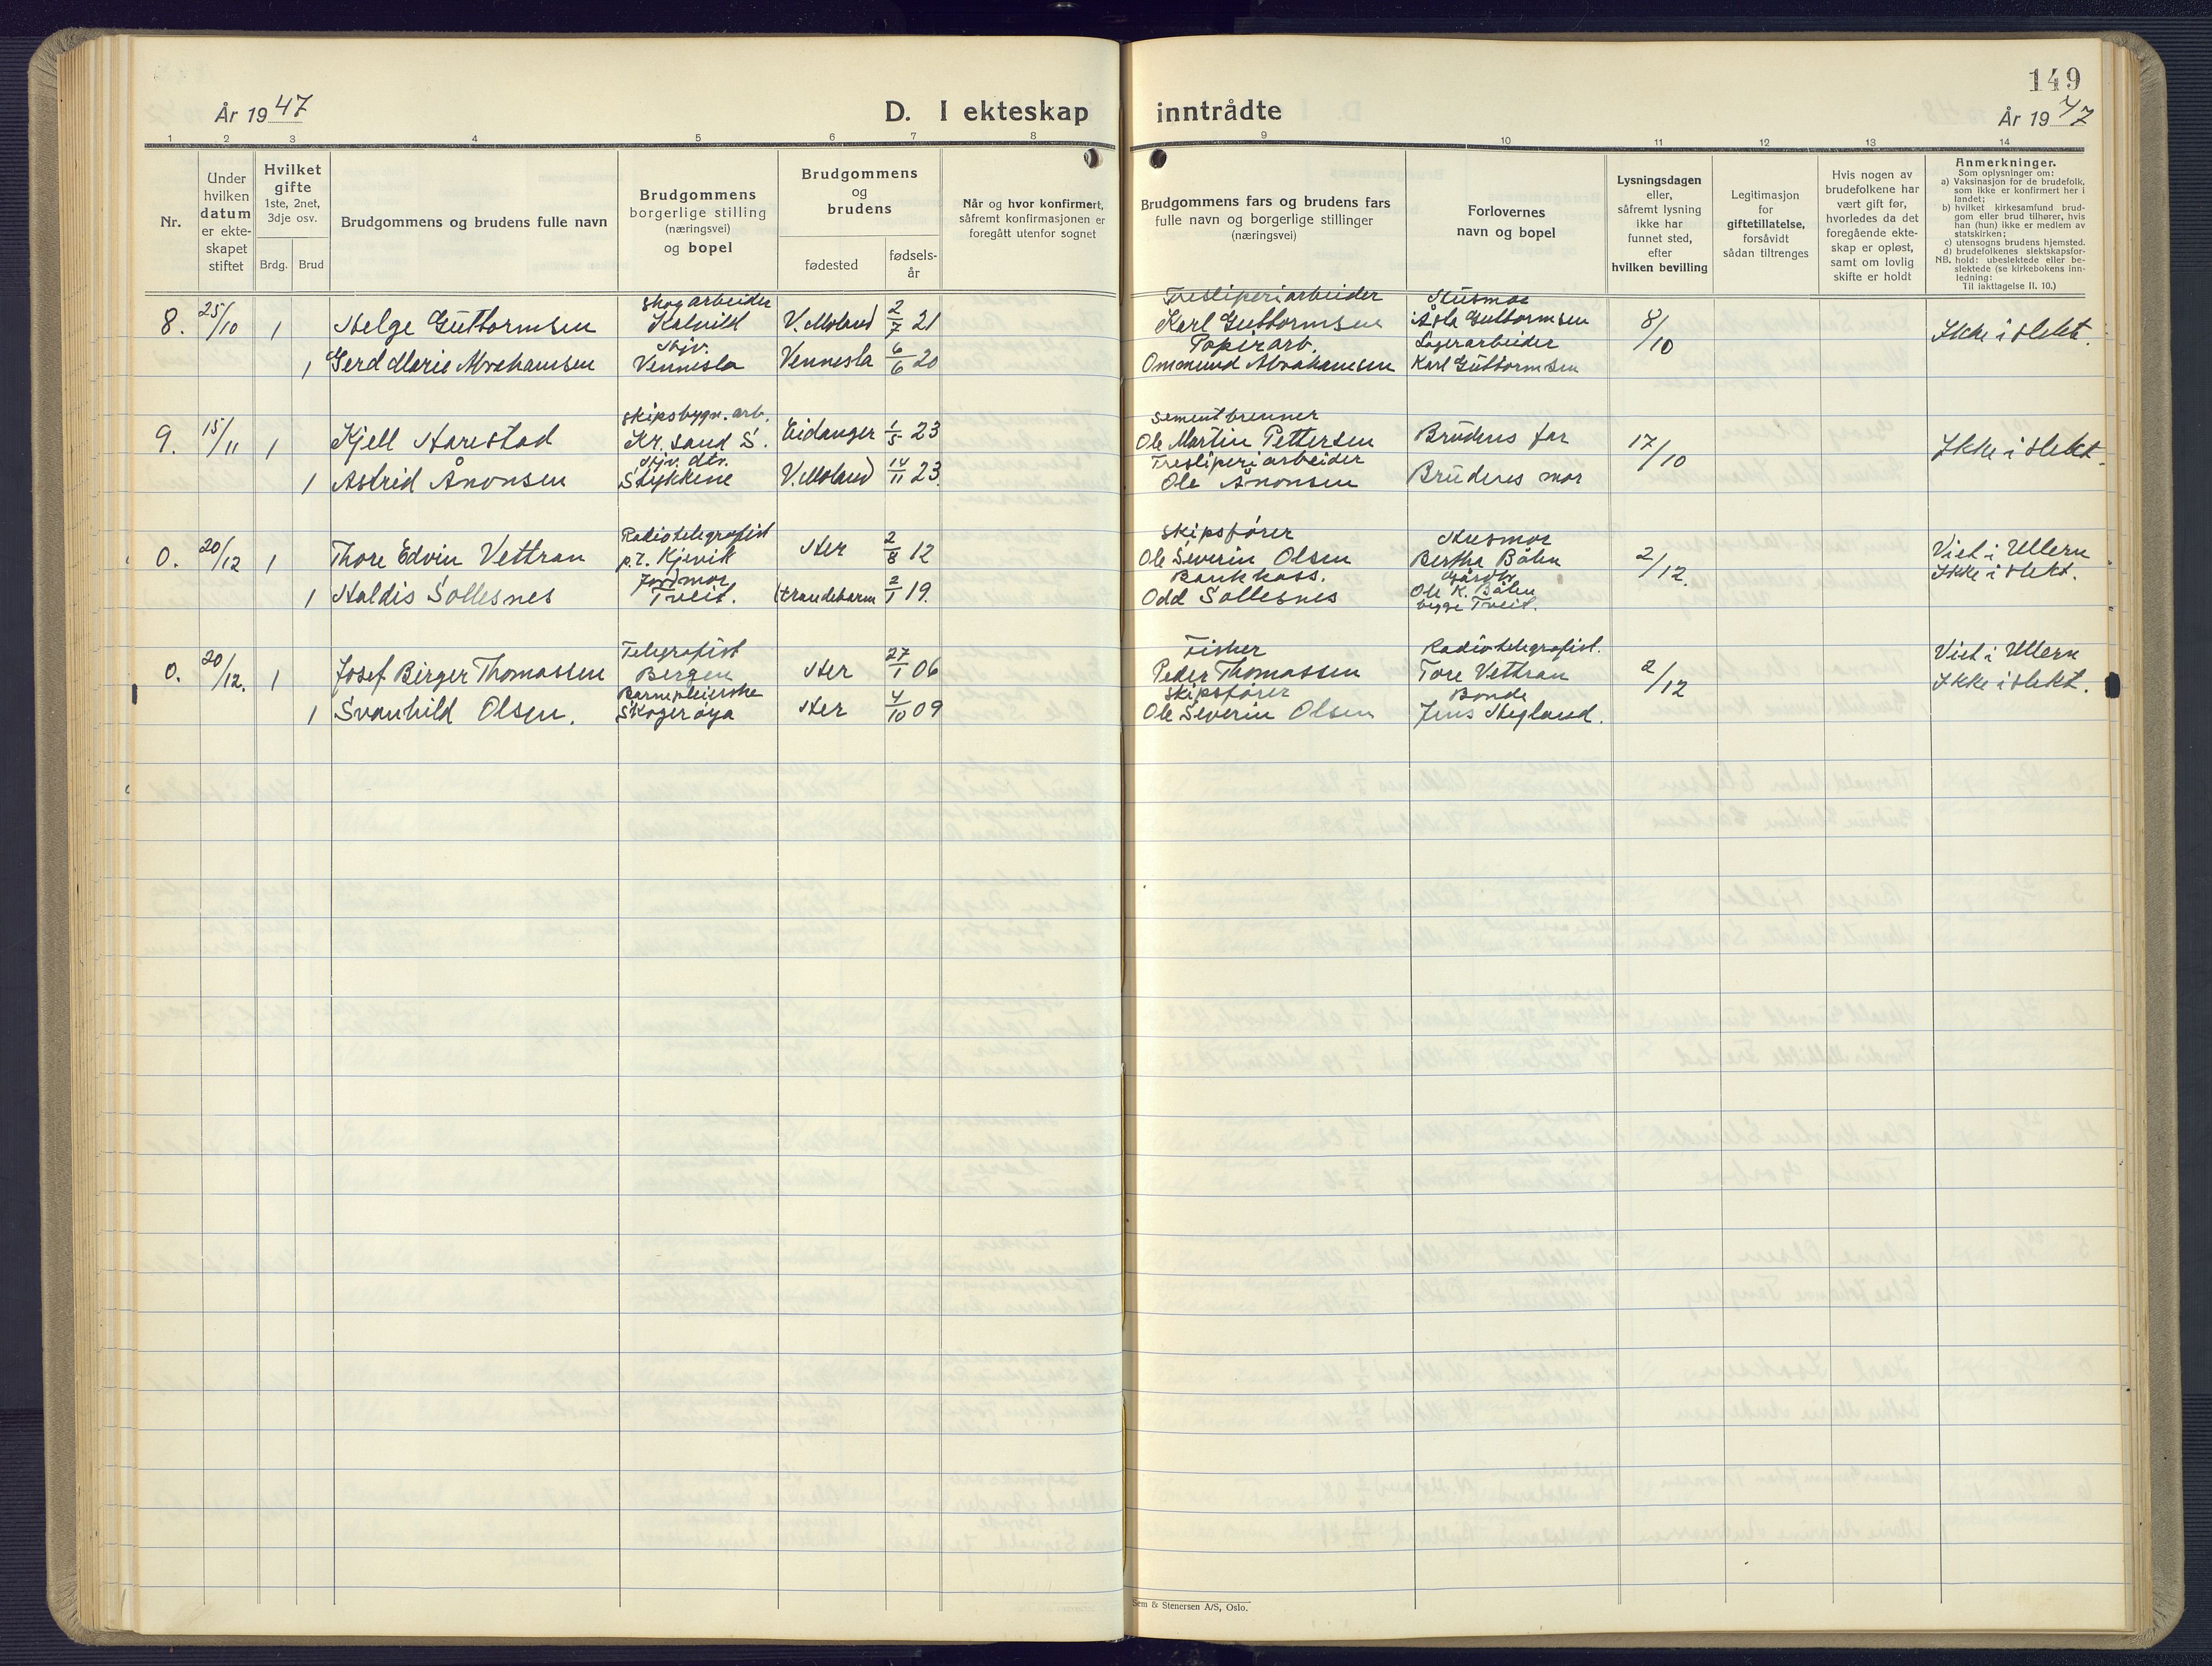 149
År 1947
D. I ekteskap inntrådte
År 1947
1 2 3 4 5 6 7 8 9 10 11 12 13 14
Nr.
Under hvilken datum er ekte-skapet stiftet
Hvilket gifte 1ste, 2net, 3dje osv.
Brdg. Brud
Brudgommens og brudens fulle navn
Brudgommens borgerlige stilling (næringsvei) og bopel
Brudgommens og brudens
fødested
fødsels-år
Når og hvor konfirmert, såfremt konfirmasjonen er foregått utenfor sognet
Brudgommens fars og brudens fars fulle navn og borgerlige stillinger (næringsvei)
Forlovernes navn og bopel
Lysningsdagen eller, såfremt lysning ikke har funnet sted, efter hvilken bevilling
Legitimasjon for giftetillatelse, forsåvidt sådan tiltrenges
Hvis nogen av brudefolkene har vært gift før, hvorledes da det foregående ekte-skap er opløst, samt om lovlig skifte er holdt
Anmerkninger.
Som oplysninger om:
a) Vaksinasjon for de brudefolk, som ikke er konfirmert her i landet;
b) hvilket kirkesamfund brud-gom eller brud tilhører, hvis han (hun) ikke er medlem av statskirken;
c) utensogns brudens hjemsted.
d) brudefolkenes slektskapsfor-hold: ubeslektede eller be-slektede (se kirkebokens inn-ledning:
NB.
Til iakttagelse II. 10.)
skogarbeider Tresliperiarbeider Husmor
8. 25/10 1 Helge Guttormsen V. Moland 2/7 21 Karl Guttormsen Åsta Guttormsen 8/10 Ikke i slekt.
Hjv. Papirarb. Lagerarbeider
1 Gerd Marie Abrahamsen Vennesla Vennesla 6/6 20 Ommund Abrahamsen Karl Guttormsen
skipsbygn. arb. Sementbrenner
9. 15/11 1 Kjell Harestad Kr. sand S. Eidanger 1/5 23 Ole Martin Pettersen Brudens far 17/10 Ikke i slekt.
Hjv. dtr. Tresliperiarbeider
1 Astrid Ånonsen Stykkene V. Moland 14/11 23. Ole Ånonsen Brudens mor
Radiotelegrafist Skipsfører Husmor
0. 20/12 1 Thore Edvin Vettran p.t. Kjevik Her 2/8 12 Ole Severin Olsen Bertha Bålen 2/12. Viet i Ullern
Jordmor Bankkass. Gårdbr. Ikke i slekt.
1 Haldis Sollesnes Tveit. Strandebarm 2/1 19. Odd Sollesnes Ole K. Bålen
bygge Tveit.
Telegrafist Fisker Radiotelegrafist. Viet i Ullern
0. 20/12. 1 Josef Birger Thomassen Bergen Her 27/1 06 Peder Thomassen Tore Vettran 2/12 Ikke i slekt.
Barnepleierske Skipsfører Bonde
1 Svanhild Olsen. Skogerøya Her 4/10 09 Ole Severin Olsen Jens Hegland.
Sem & Stenersen A/S, Oslo.